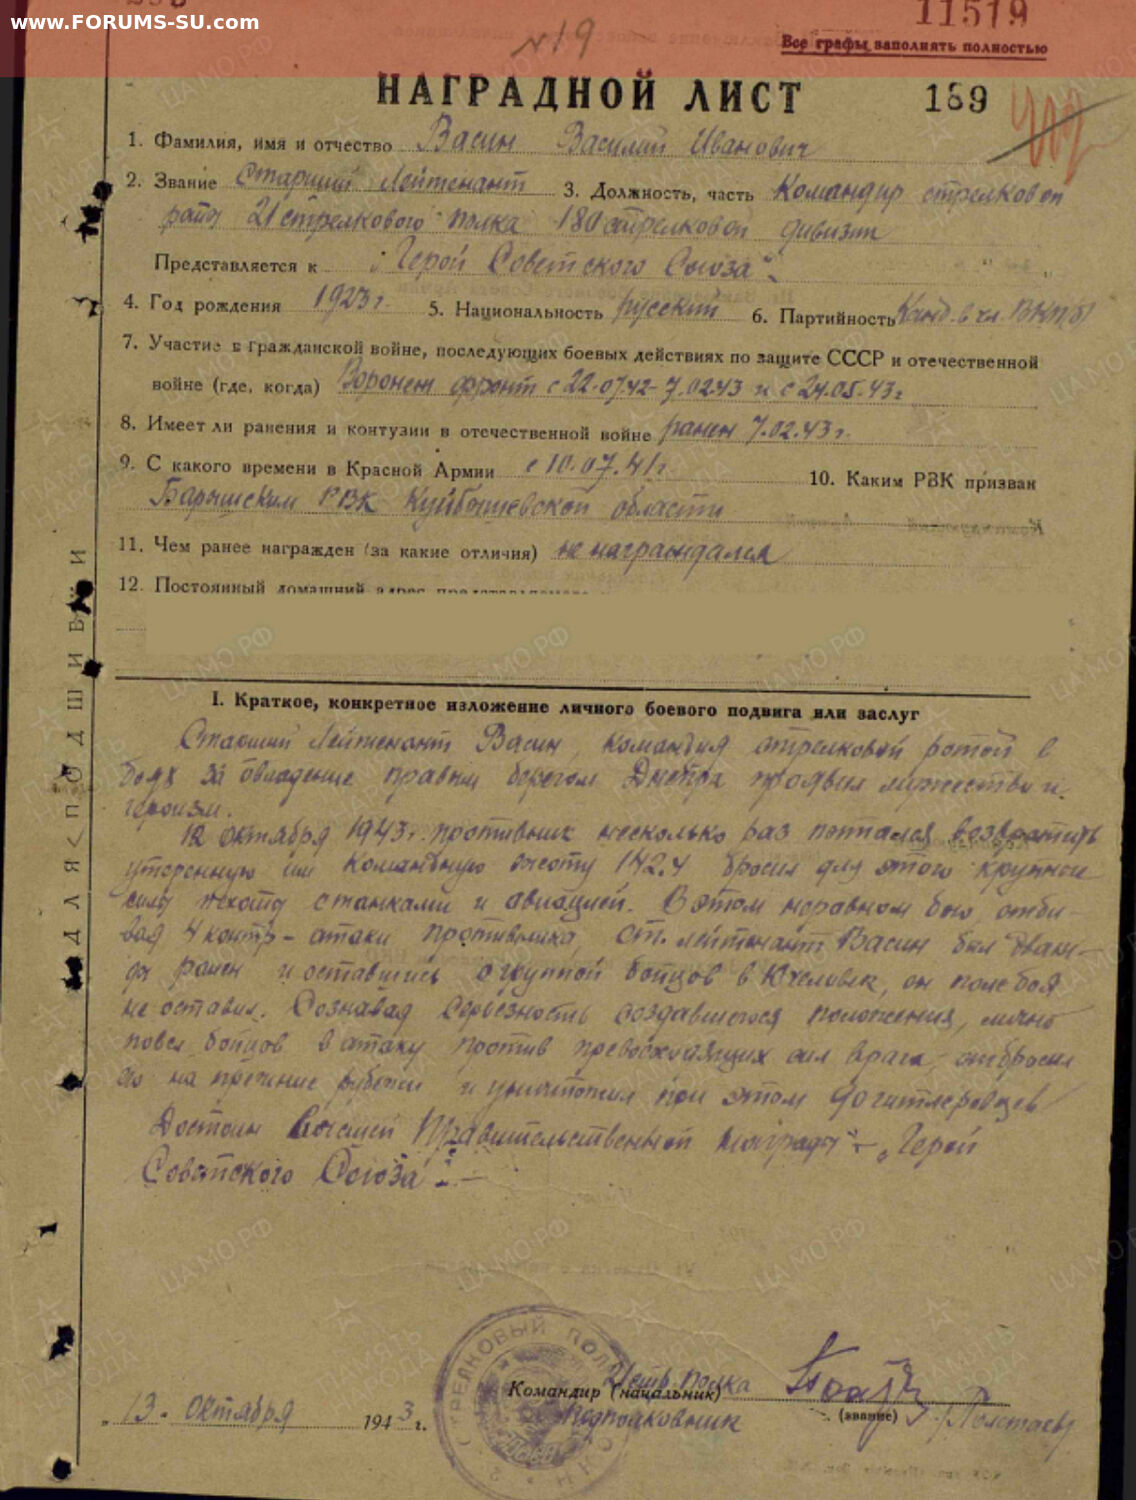 www.FORUMS-SU.com
№19
11519
Все графы заполнять полностью
НАГРАДНОЙ ЛИСТ
189
1. Фамилия, имя и отчество Васин Василий Иванович
2. Звание Старший Лейтенант 3. Должность, часть Командир стрелковой
роты 21 стрелкового полка 180 стрелковой дивизии
Представляется к "Герой Советского Союза".
4. Год рождения 1923 г. 5. Национальность русский 6. Партийность Канд. в чл. ВКП(б)
7. Участие в гражданской войне, последующих боевых действиях по защите СССР и отечественной
войне (где, когда) Воронеж фронт с 22.07.42 - 7.02.43 и с 24.05.43 г
8. Имеет ли ранения и контузии в отечественной войне ранен 7.02.43 г.
9. С какого времени в Красной Армии с 10.07.41 г. 10. Каким РВК призван
Барышским РВК Куйбышевской области
11. Чем ранее награжден (за какие отличия) не награждался
12. Постоянный домашний адрес представляемого
I. Краткое, конкретное изложение личного боевого подвига или заслуг
Старший Лейтенант Васин, командуя стрелковой ротой в
боях за овладение правым берегом Днепра проявил мужество и
героизм.
12 октября 1943 г. противник несколько раз пытался возвратить
утерянную им командную высоту 142.4 бросил для этого крупные
силы пехоты с танками и авиацией. В этом неравном бою, отби-
вая 4 контр-атаки противника, ст. лейтенант Васин был дваж-
ды ранен и оставшись с группой бойцов в 10 человек, он поле боя
не оставил. Сознавая серьезность создавшегося положения, лично
повел бойцов в атаку против превосходящих сил врага, отбросил
его на прежние рубежи и уничтожил при этом до гитлеровцев
Достоин высшей Правительственной награды - "Герой
Советского Союза". -
ДЛЯ ПОДШИВКИ
Командир (начальник) 21 стр. полка
Подполковник
(звание)
"13" октября 1943 г.
СТРЕЛКОВЫЙ ПОЛК
ЦАМО.РФ